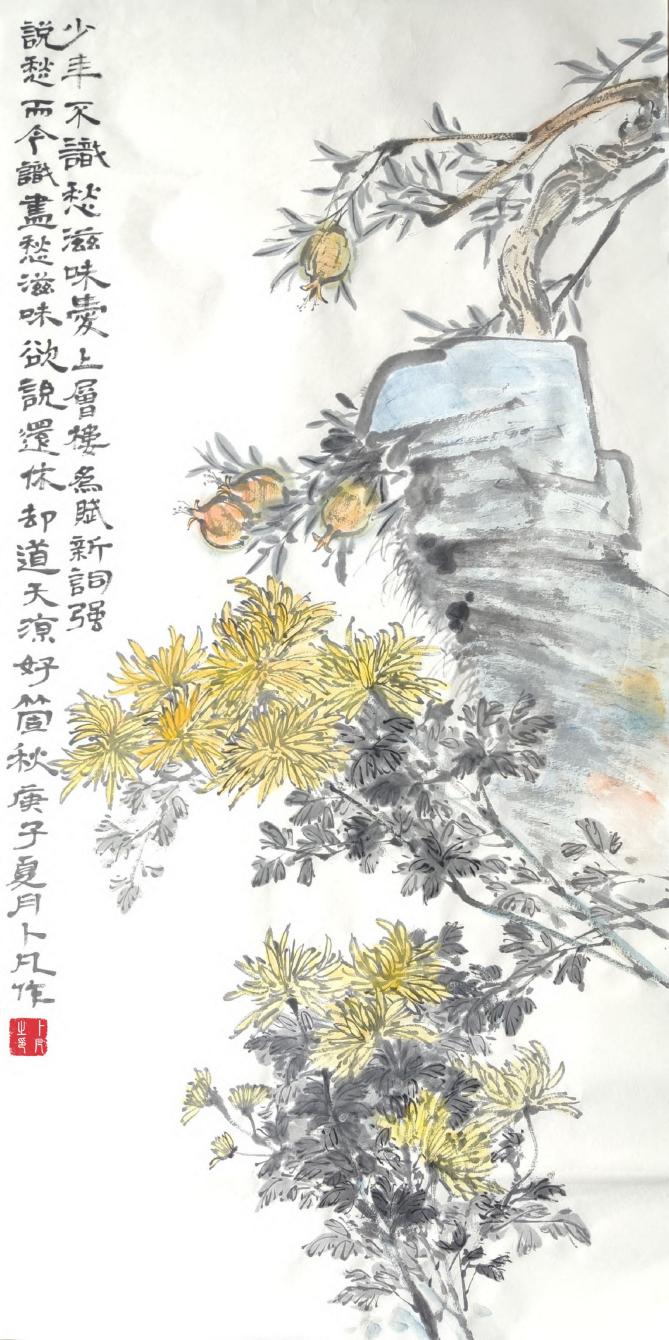 少年不識愁滋味愛上層樓為賦新詞强
說愁而今識盡愁滋味欲說還休却道天凉好箇秋庚子夏月卜凡作
卜凡之印